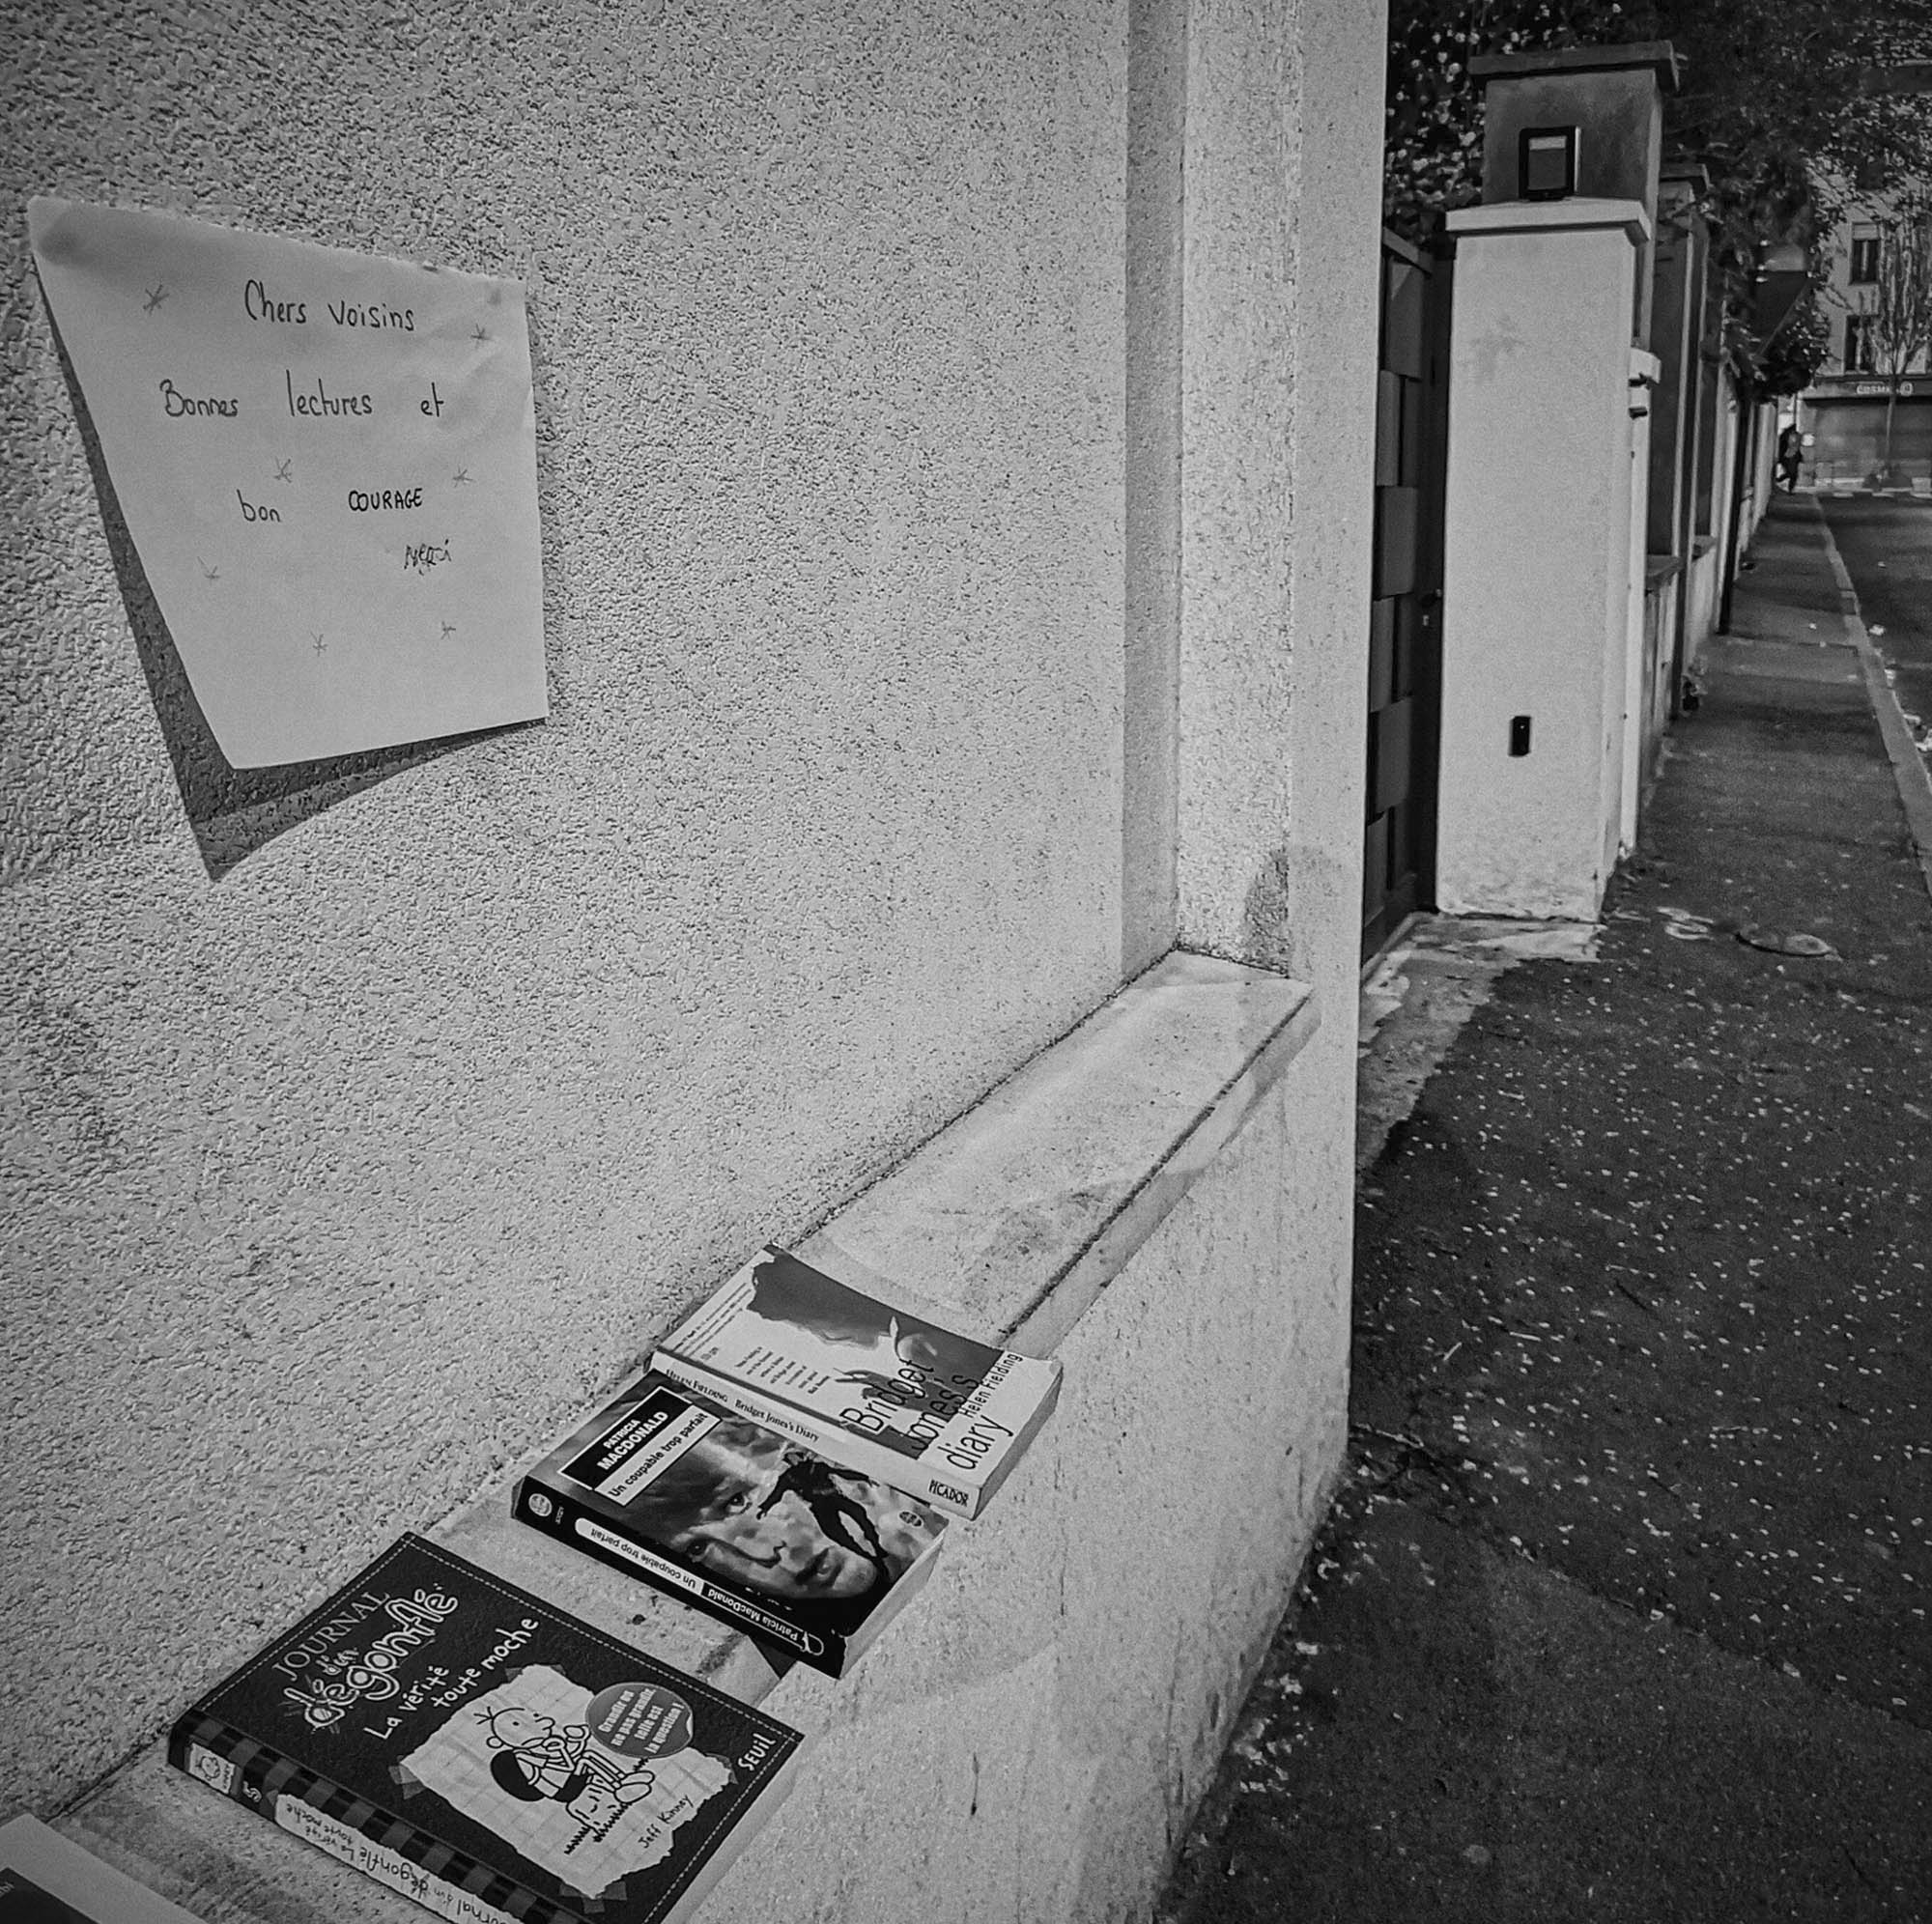 Chers voisins
Bonnes lectures et
bon COURAGE
Merci
Bridget
Jones's
diary
Helen Fielding
HELEN FIELDING Bridget Jones's Diary
PICADOR
PATRICIA
MACDONALD
Un coupable trop parfait
Patricia MacDonald Un coupable trop parfait
JOURNAL
d'un
dégonflé
La vérité
toute moche
Grandir ou
ne pas grandir
telle est
la question !
SEUIL
Jeff Kinney
KINNEY
Journal d'un dégonflé La vérité
toute moche